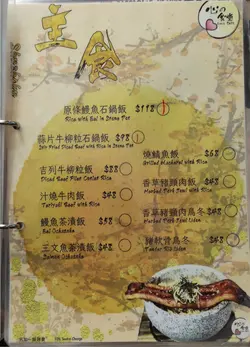 主食
原條鰻魚石鍋飯 $118
Rice with Eel in Stone Pot
蒜片牛柳粒石鍋飯 $98
Stir Fried Diced Beef with Rice in Stone Pot
吉列牛柳粒飯 $88
Diced Beef Fillet Cutlet Rice
汁燒牛肉飯 $48
Teriyaki Beef with Rice
鰻魚茶漬飯 $58
Eel Ochazuke
三文魚茶漬飯 $48
Salmon Ochazuke
燒鯖魚飯 $68
Grilled Mackerel with Rice
香草豬頸肉飯 $48
香草豬頸肉烏冬 $48
豬軟骨烏冬 $48